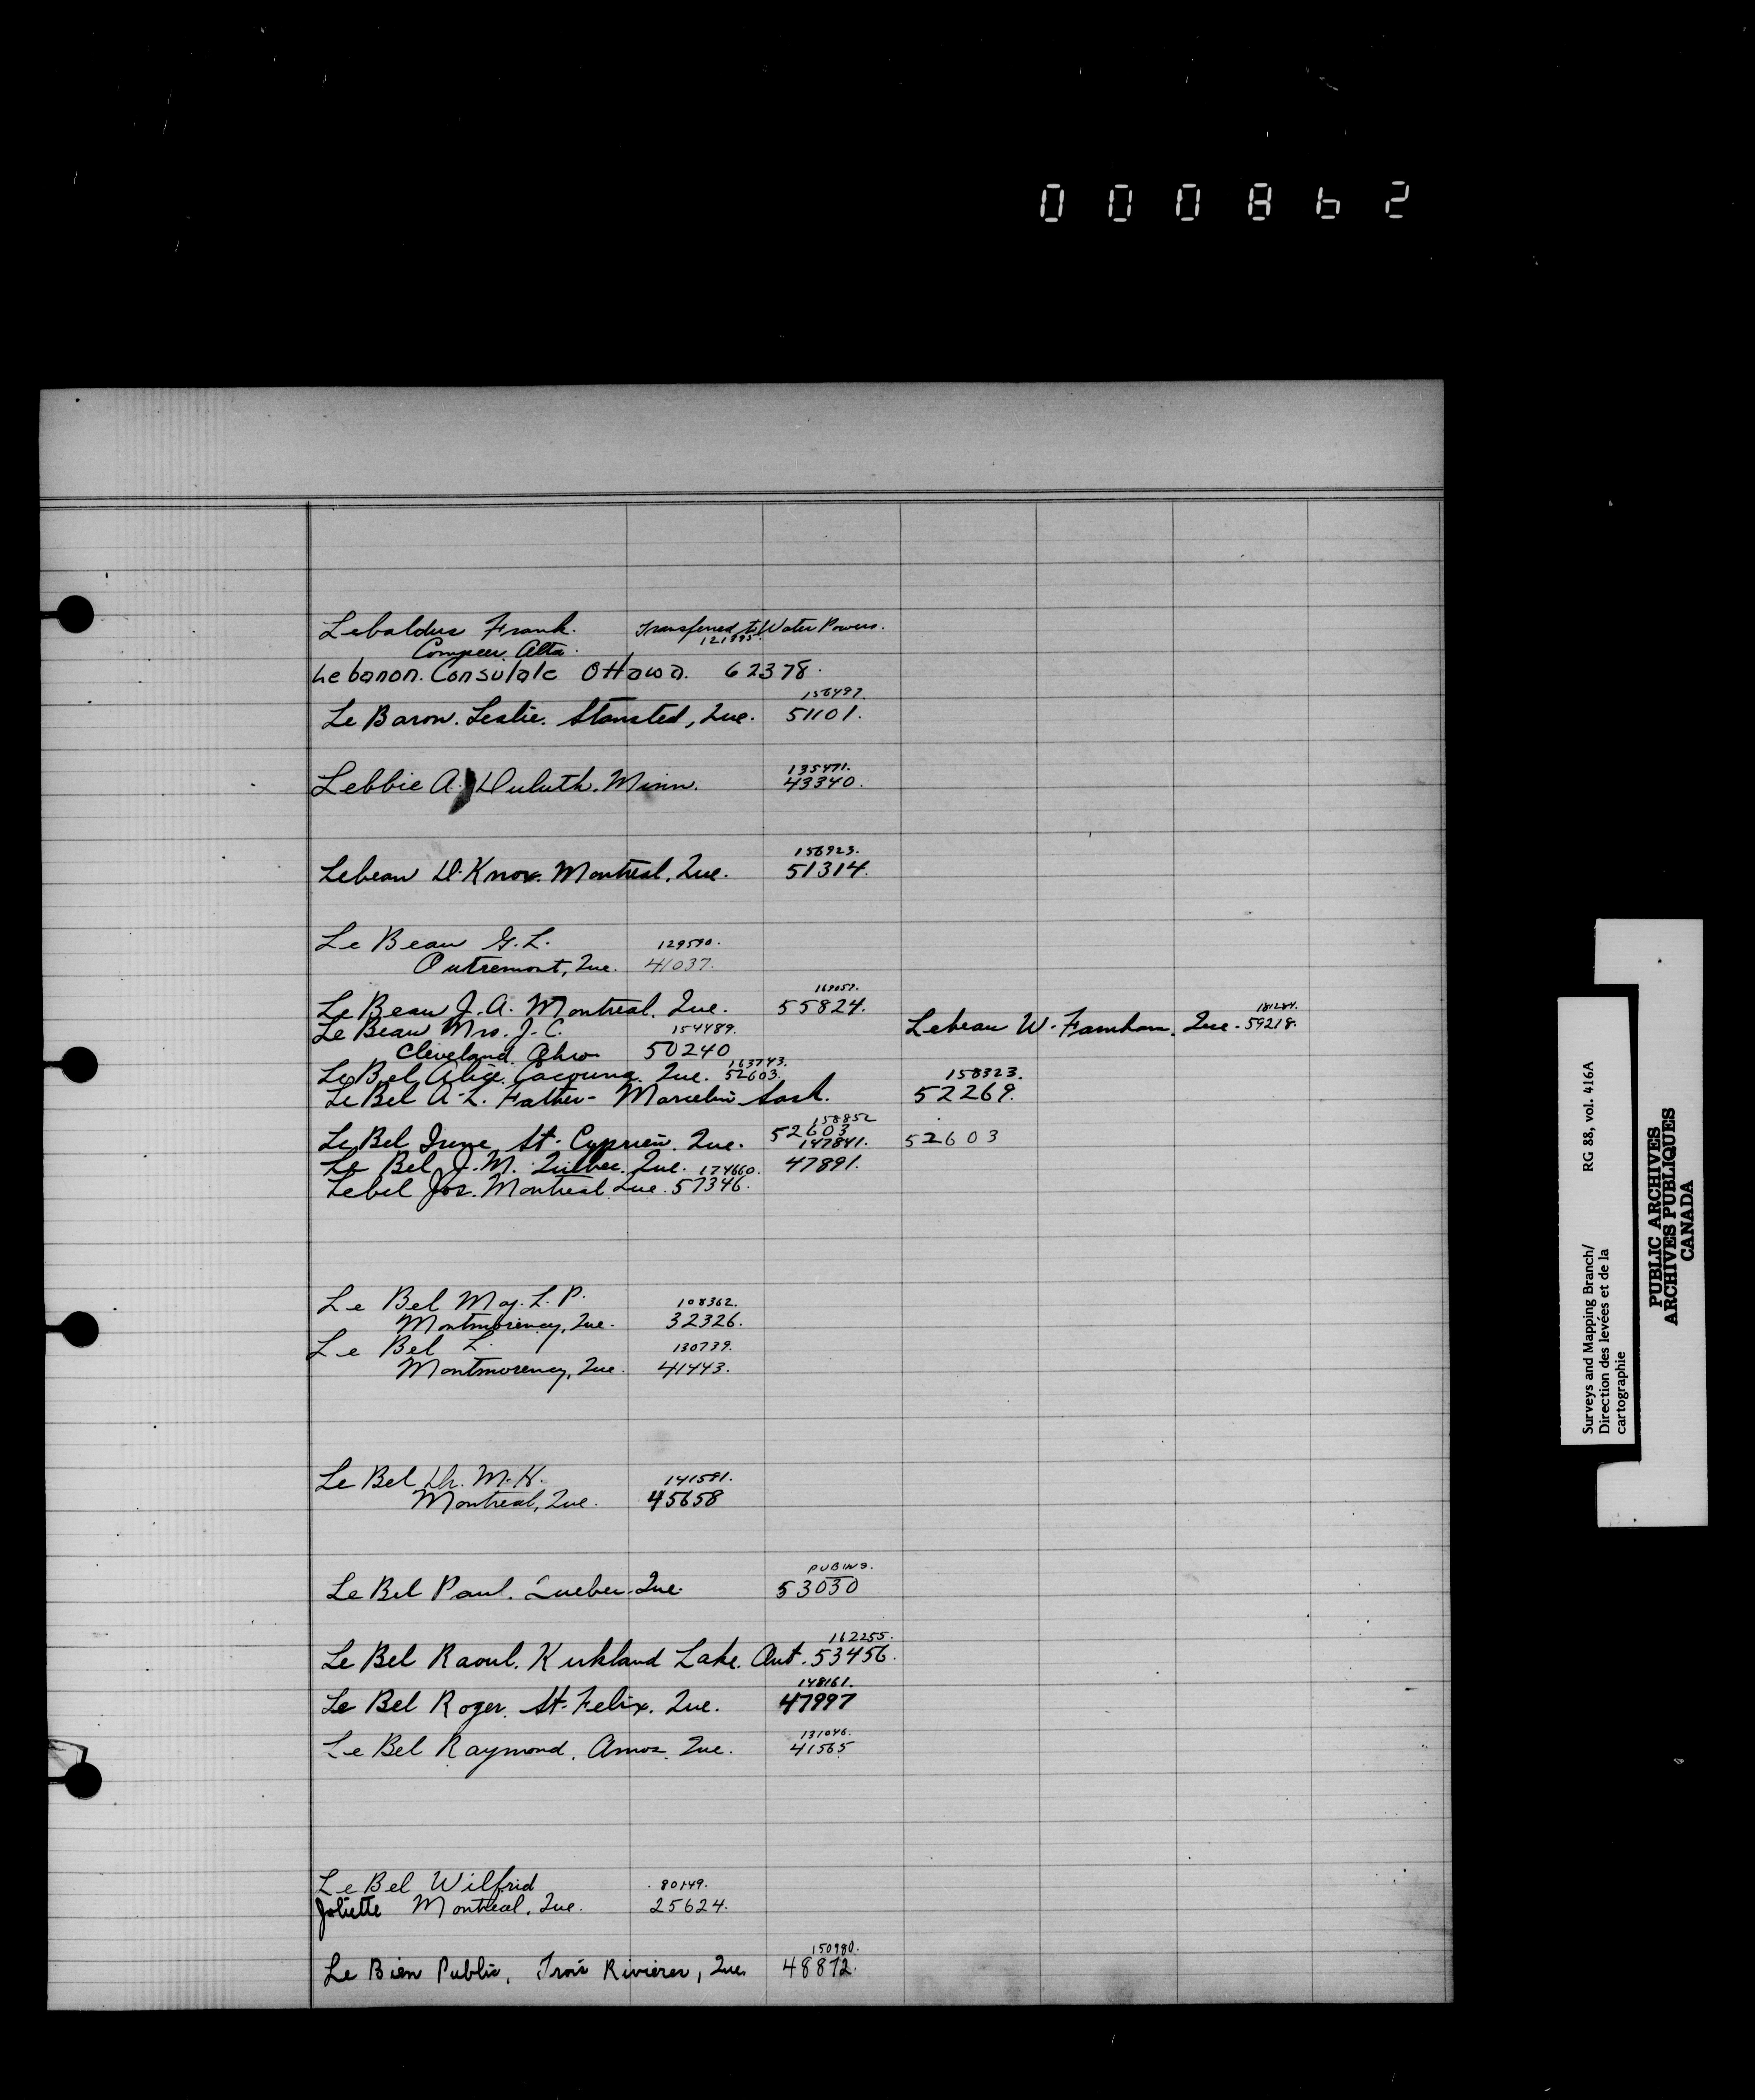 000862
Lebaldus Frank. Transferred to Water Powers.
Compeer. Alta. 121895.
Lebanon. Consulate Ottawa. 62378.
156497.
Le Baron. Leslie. Stansted, Que. 51101.
135471.
Lebbie A. Duluth. Minn. 43340.
156923.
Lebeau D. Knox. Montreal. Que. 51314.
Le Beau G. L. 129590.
Outremont, Que. 41037.
169059.
Le Beau J. A. Montreal. Que. 55824.
181284.
Lebeau W. Farnham. Que. 59218.
Le Beau Mrs. J. C. 154489.
Cleveland. Ohio 50240
163743.
Le Bel Alice. Cacouna. Que. 52603.
158323.
Le Bel A. L. Father - Marcelin Sask. 52269.
158852
Le Bel Irene St. Cyprien. Que. 52603 52603
147841.
Le Bel J. M. Quebec. Que. 47891.
174660.
Lebel Jos. Montreal Que. 57346.
Le Bel Maj. L. P. 108362.
Montmorency, Que. 32326.
Le Bel L. 130739.
Montmorency, Que. 41443.
Le Bel Dr. M. H. 141591.
Montreal, Que. 45658
PUBING.
Le Bel Paul. Quebec. Que. 53030
162255.
Le Bel Raoul. Kirkland Lake. Ont. 53456.
148161.
Le Bel Roger. St. Felix. Que. 47997
131046.
Le Bel Raymond. Amos. Que. 41565
Le Bel Wilfrid 80149.
Joliette Montreal, Que. 25624.
150980.
Le Bien Public, Trois Rivieres, Que. 48872.
Surveys and Mapping Branch/ RG 88, vol. 416A
Direction des levées et de la
cartographie
PUBLIC ARCHIVES
ARCHIVES PUBLIQUES
CANADA